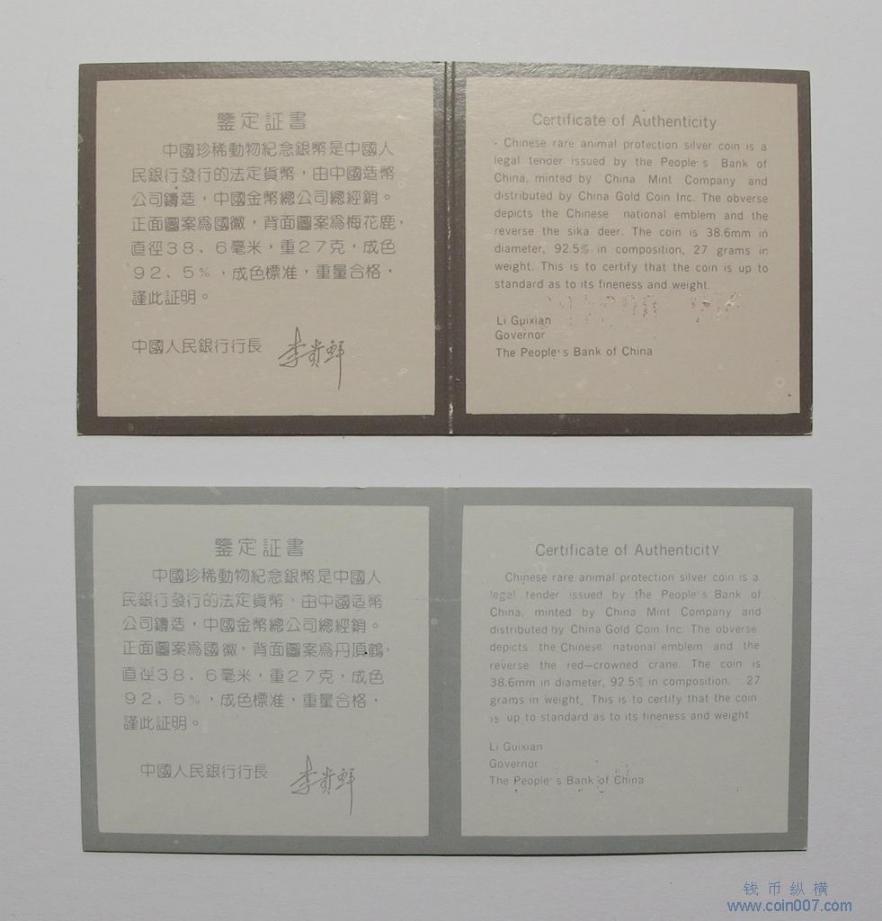 鑒定証書
中國珍稀動物紀念銀幣是中國人
民銀行發行的法定貨幣，由中國造幣
公司鑄造，中國金幣總公司總經銷。
正面圖案爲國徽，背面圖案爲梅花鹿，
直徑38．6毫米，重27克，成色
92．5%，成色標准，重量合格，
謹此証明。
中國人民銀行行長 李貴鲜
Certificate of Authenticity
Chinese rare animal protection silver coin is a
legal tender issued by the People's Bank of
China, minted by China Mint Company and
distributed by China Gold Coin Inc. The obverse
depicts the Chinese national emblem and the
reverse the sika deer. The coin is 38.6mm in
diameter, 92.5% in composition, 27 grams in
weight. This is to certify that the coin is up to
standard as to its fineness and weight.
Li Guixian
Governor
The People's Bank of China
鑒定証書
中國珍稀動物紀念銀幣是中國人
民銀行發行的法定貨幣，由中國造幣
公司鑄造，中國金幣總公司總經銷。
正面圖案爲國徽，背面圖案爲丹頂鶴，
直徑38．6毫米，重27克，成色
92．5%，成色標准，重量合格，
謹此証明。
中國人民銀行行長 李貴鲜
Certificate of Authenticity
Chinese rare animal protection silver coin is a
legal tender issued by the People's Bank of
China, minted by China Mint Company and
distributed by China Gold Coin Inc. The obverse
depicts the Chinese national emblem and the
reverse the red-crowned crane. The coin is
38.6mm in diameter, 92.5% in composition, 27
grams in weight. This is to certify that the coin
is up to standard as to its fineness and weight
Li Guixian
Governor
The People's Bank of China
钱币纵横
www.coin007.com